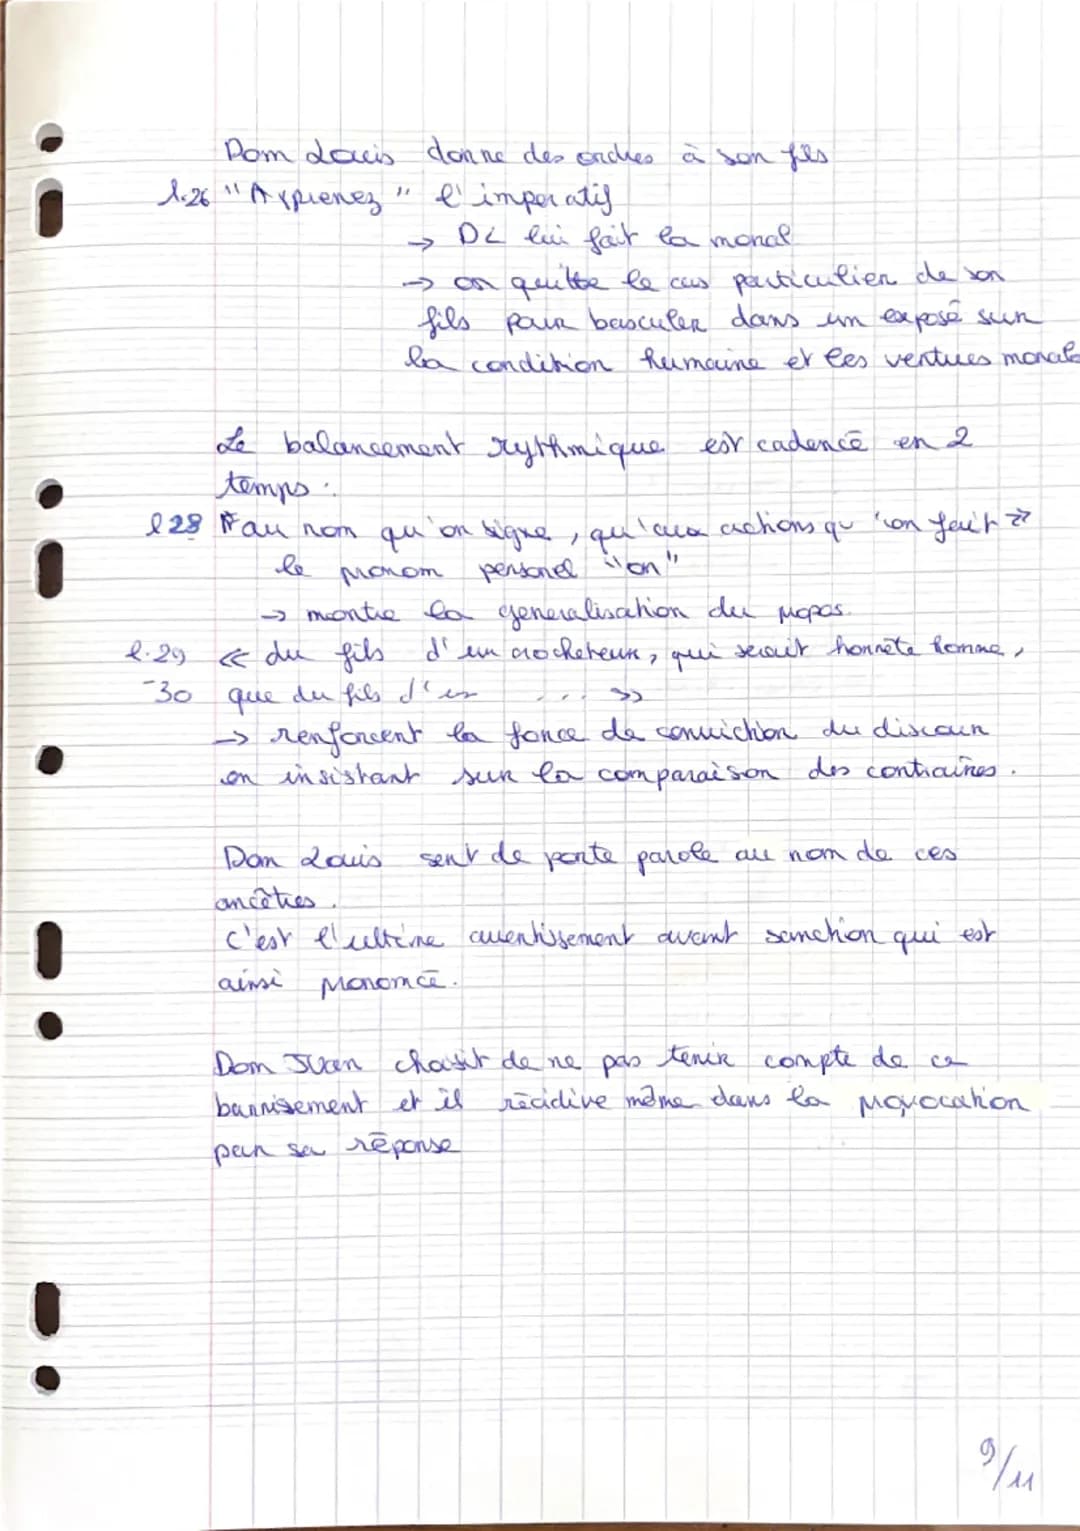 Dom Louis donne des ordres à son fils
l.26 "Apprenez" l'imperatif
→ DL lui fait la moral
→ on quitte le cas particulier de son
fils pour basculer dans un exposé sur
la condition humaine et les vertues morale
Le balancement rythmique est cadencé en 2
temps :
l 28 « au nom qu'on signe, qu'aux actions qu'on fait »
le pronom personel "on"
→ montre la generalisation du propos.
l.29 « du fils d'un crocheteur, qui serait honnête homme,
-30 que du fils d'un ... »
→ renforcent la force de conviction du discour
en insistant sur la comparaison des contraires.
Dom Louis sert de porte parole au nom de ces
ancêtres.
C'est l'ultime avertissement avant sanction qui est
ainsi prononcé.
Dom Juan choisit de ne pas tenir compte de ce
bannisement et il récidive même dans la provocation
par sa réponse
9/11